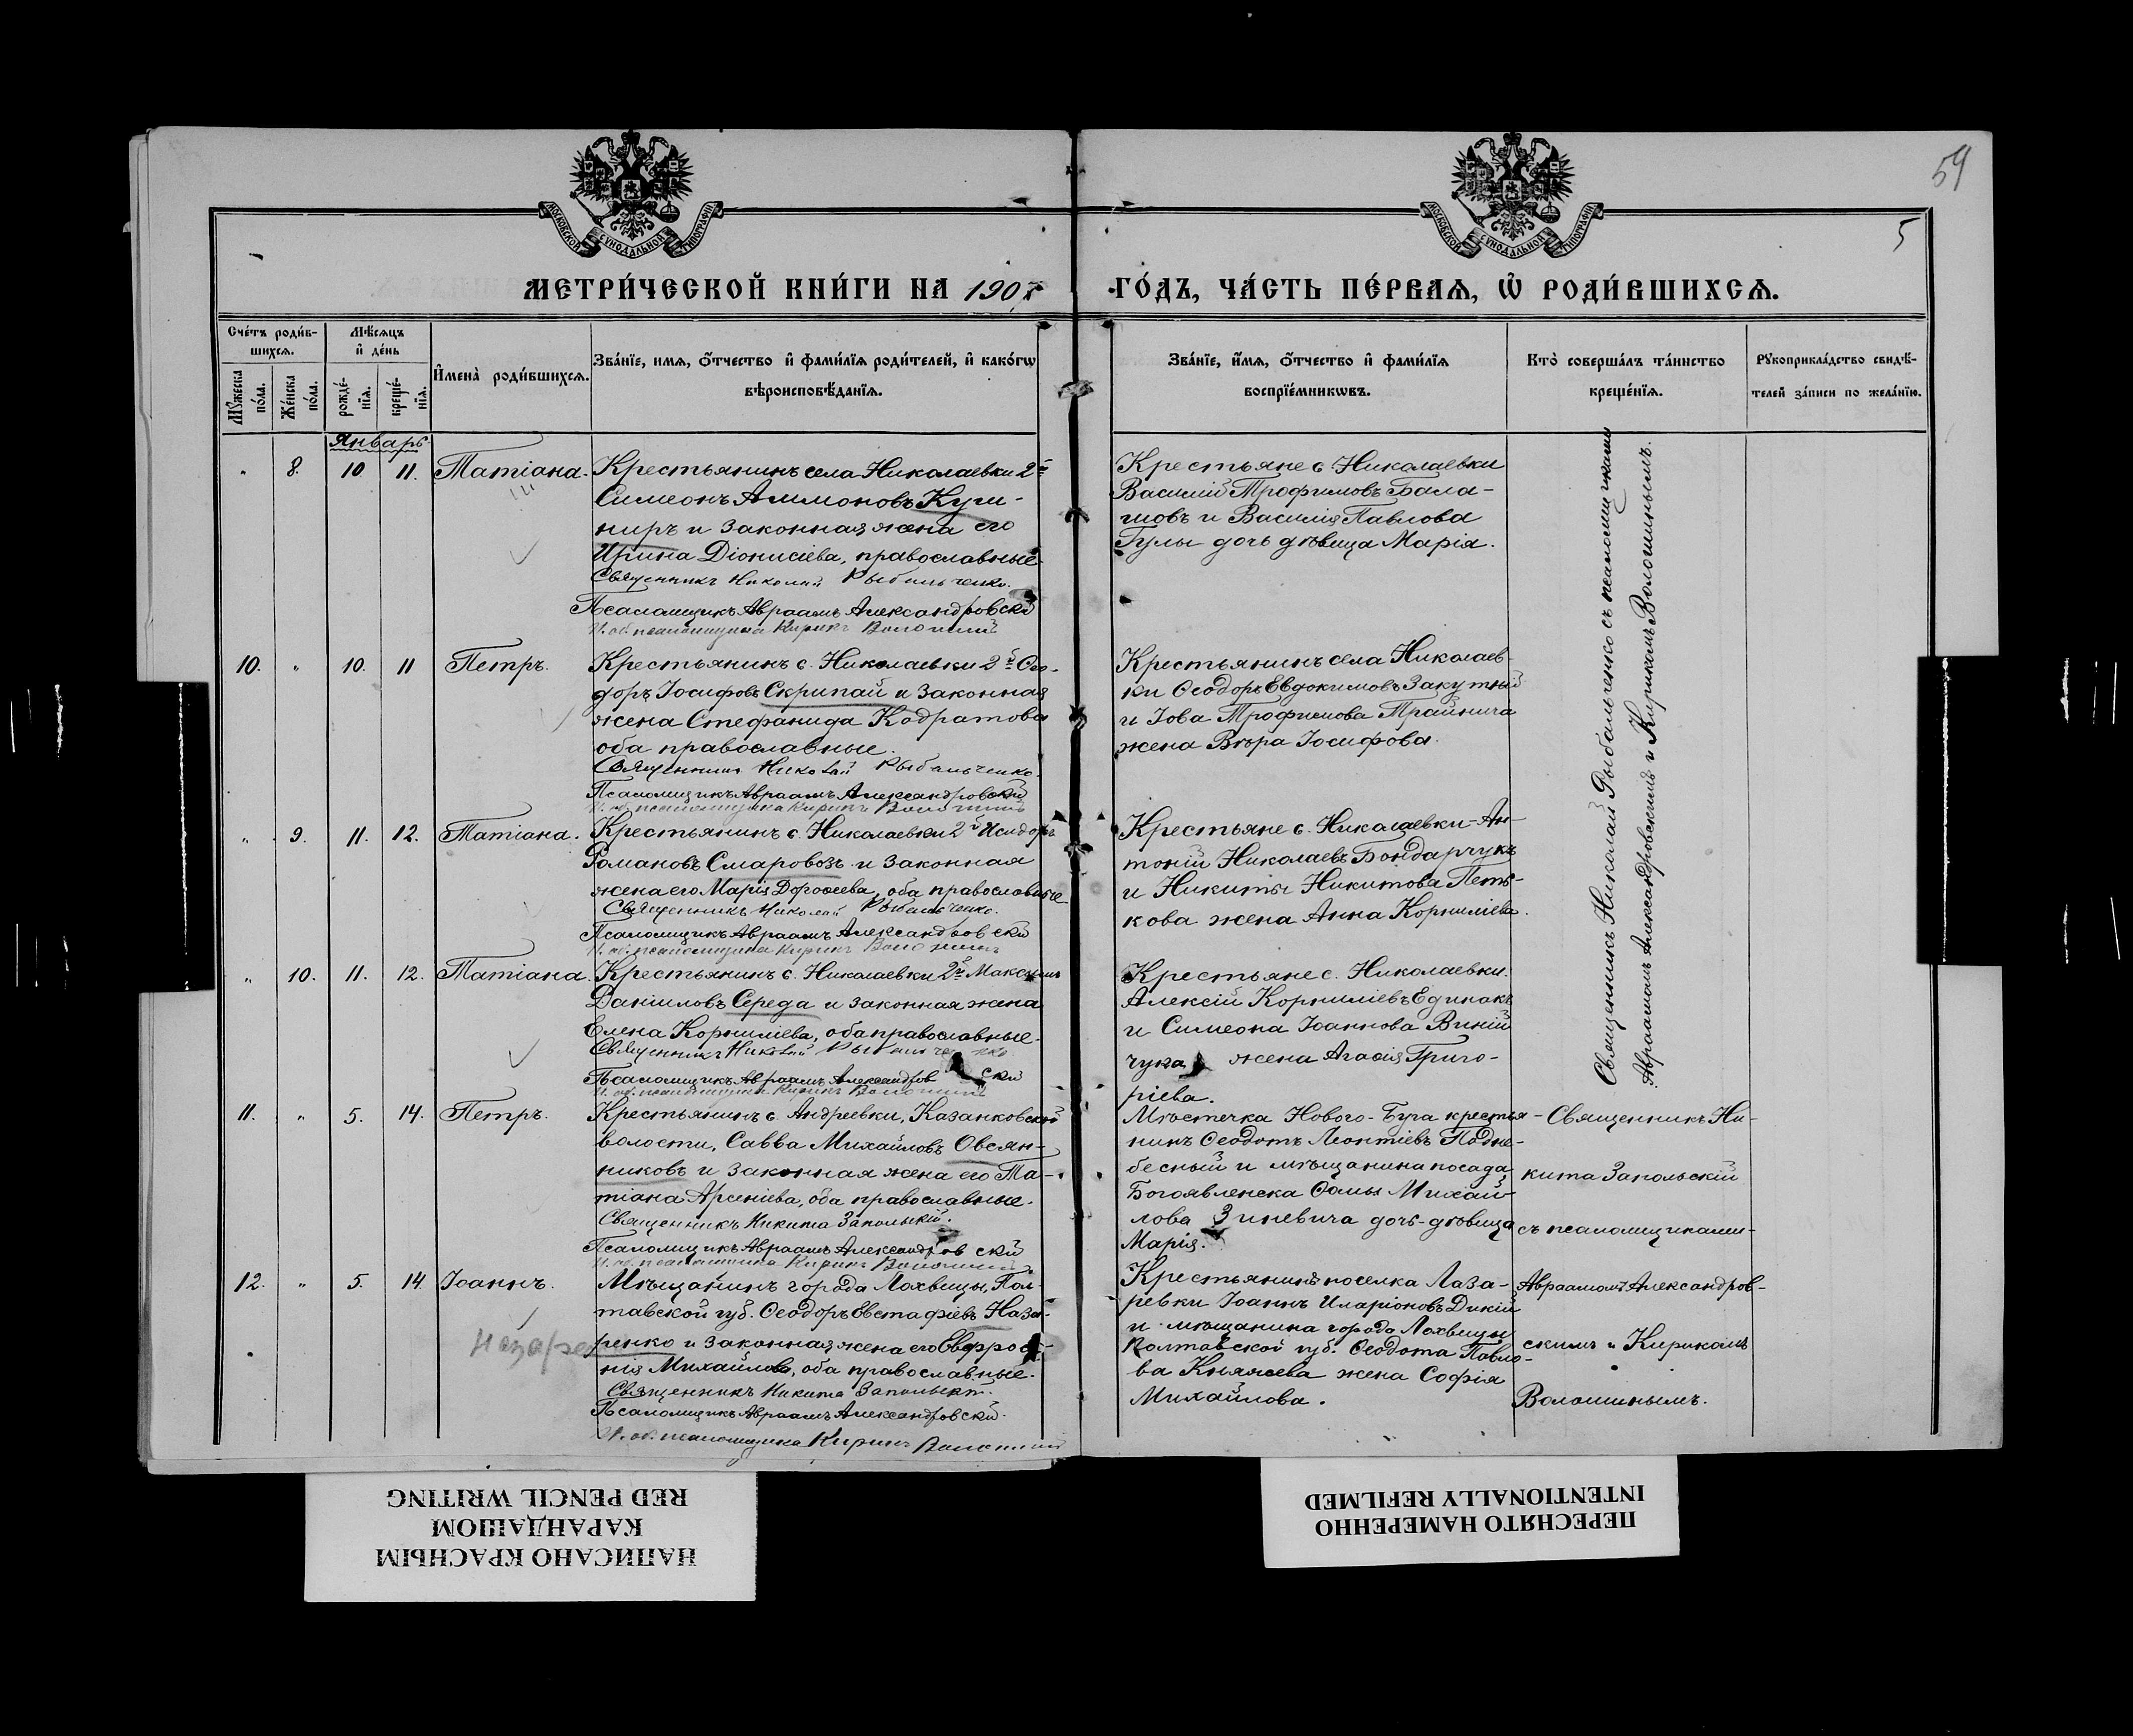 59
5
МОСКОВСКОЙ СѴНОДАЛЬНОЙ ТИПОГРАФІИ
МОСКОВСКОЙ СѴНОДАЛЬНОЙ ТИПОГРАФІИ
МЕТРИ́ЧЕСКОЙ КНИ́ГИ НА 1907
ГО́ДЪ, ЧА́СТЬ ПЕ́РВАЯ, Ѡ РОДИ́ВШИХСЯ.
Сче́тъ роди́в-
шихся.
Мѣ́сяцъ
и де́нь
Му́жеска
по́ла.
Же́нска
по́ла.
рожде́-
нїя.
креще́-
нїя.
Имена̀ роди́вшихся.
Зва́нїе, имя, о́тчество и фами́лїя роди́телей, и како́гѡ
вѣроисповѣ́данїя.
Зва́нїе, и́мя, о́тчество и фами́лїя
воспрїе́мникѡвъ.
Кто̀ соверша́лъ та́инство
креще́нїя.
Рукоприкла́дство свидѣ́-
телей за́писи по жела́нїю.
Январь
" 8. 10 11. Татіана.
Крестьянинъ села Николаевки 2й
Симеонъ Аммоновъ Куш-
ниръ и законная жена его
Ирина Діонисіева, православные
Священникъ Николай Рыбальченко.
Псаломщикъ Авраамъ Александровскій
И. об. псаломщика Кирикъ Волошинъ
Крестьяне с Николаевки
Василій Трофимовъ Бала-
шовъ и Василія Павлова
Гулы дочь дѣвица Марія.
10. " 10. 11 Петръ.
Крестьянинъ с. Николаевки 2й Ѳео-
доръ Іосифовъ Скрипай и законная
жена Стефанида Кодратова
оба православные.
Священникъ Николай Рыбальченко.
Псаломщикъ Авраамъ Александровскій
И. об. псаломщика Кирикъ Волошинъ
Крестьянинъ села Николаев-
ки Ѳеодоръ Евдокимовъ Закутный
и Іова Трофимова Трайнича
жена Вѣра Іосифова.
" 9. 11. 12. Татіана.
Крестьянинъ с. Николаевки 2й Исидоръ
Романовъ Смаровозъ и законная
жена его Марія Дороѳеева, оба православные
Священникъ Николай Рыбальченко.
Псаломщикъ Авраамъ Александровскій
И. об. псаломщика Кирикъ Волошинъ
Крестьяне с. Николаевки Ан-
тоній Николаевъ Бондарчукъ
и Никиты Никитова Петь-
кова жена Анна Корниліева.
" 10. 11. 12. Татіана.
Крестьянинъ с. Николаевки 2й Максимъ
Даніиловъ Середа и законная жена
Елена Корниліева, оба православные.
Священникъ Николай Рыбальченко
Псаломщикъ Авраамъ Александровскій
И. об. псаломщика Кирикъ Волошинъ
Крестьяне с. Николаевки.
Алексій Корниліевъ Единакъ
и Симеона Іоаннова Виній
чука жена Агаѳія Григо-
ріева.
Священникъ Николай Рыбальченко съ псаломщиками
Авраамомъ Александровскимъ и Кирикомъ Волошинымъ.
11. " 5. 14. Петръ.
Крестьянинъ с. Андреевки, Казанковской
волости, Савва Михайловъ Овсян-
никовъ и законная жена его Та-
тіана Арсеніева, оба православные.
Священникъ Никита Запольскій.
Псаломщикъ Авраамъ Александровскій
И. об. псаломщика Кирикъ Волошинъ
Мѣстечка Нового-Буга крестья-
нинъ Ѳеодотъ Леонтіевъ Подне-
бесный и мѣщанина посада
Богоявленска Ѳомы Михай-
лова Зиневича дочь-дѣвица
Марія.
12. " 5. 14 Іоаннъ.
Мѣщанинъ города Лохвицы, Пол-
тавской губ. Ѳеодоръ Евстафіевъ Наза-
ренко и законная жена его Евфроси-
нія Михайлова, оба православные.
Священникъ Никита Запольскій.
Псаломщикъ Авраамъ Александровскій.
И. об. псаломщика Кирикъ Волошинъ
Крестьянинъ поселка Лаза-
ревки Іоаннъ Иларіоновъ Дикій
и мѣщанина города Лохвицы
Полтавской губ. Ѳеодота Павло-
ва Князева жена Софія
Михайлова.
Священникъ Ни-
кита Запольскій
съ псаломщиками
Авраамомъ Александров-
скимъ и Кирикомъ
Волошинымъ.
НАПИСАНО КРАСНЫМ
КАРАНДАШОМ
RED PENCIL WRITING
ПЕРЕСНЯТО НАМЕРЕННО
INTENTIONALLY REFILMED